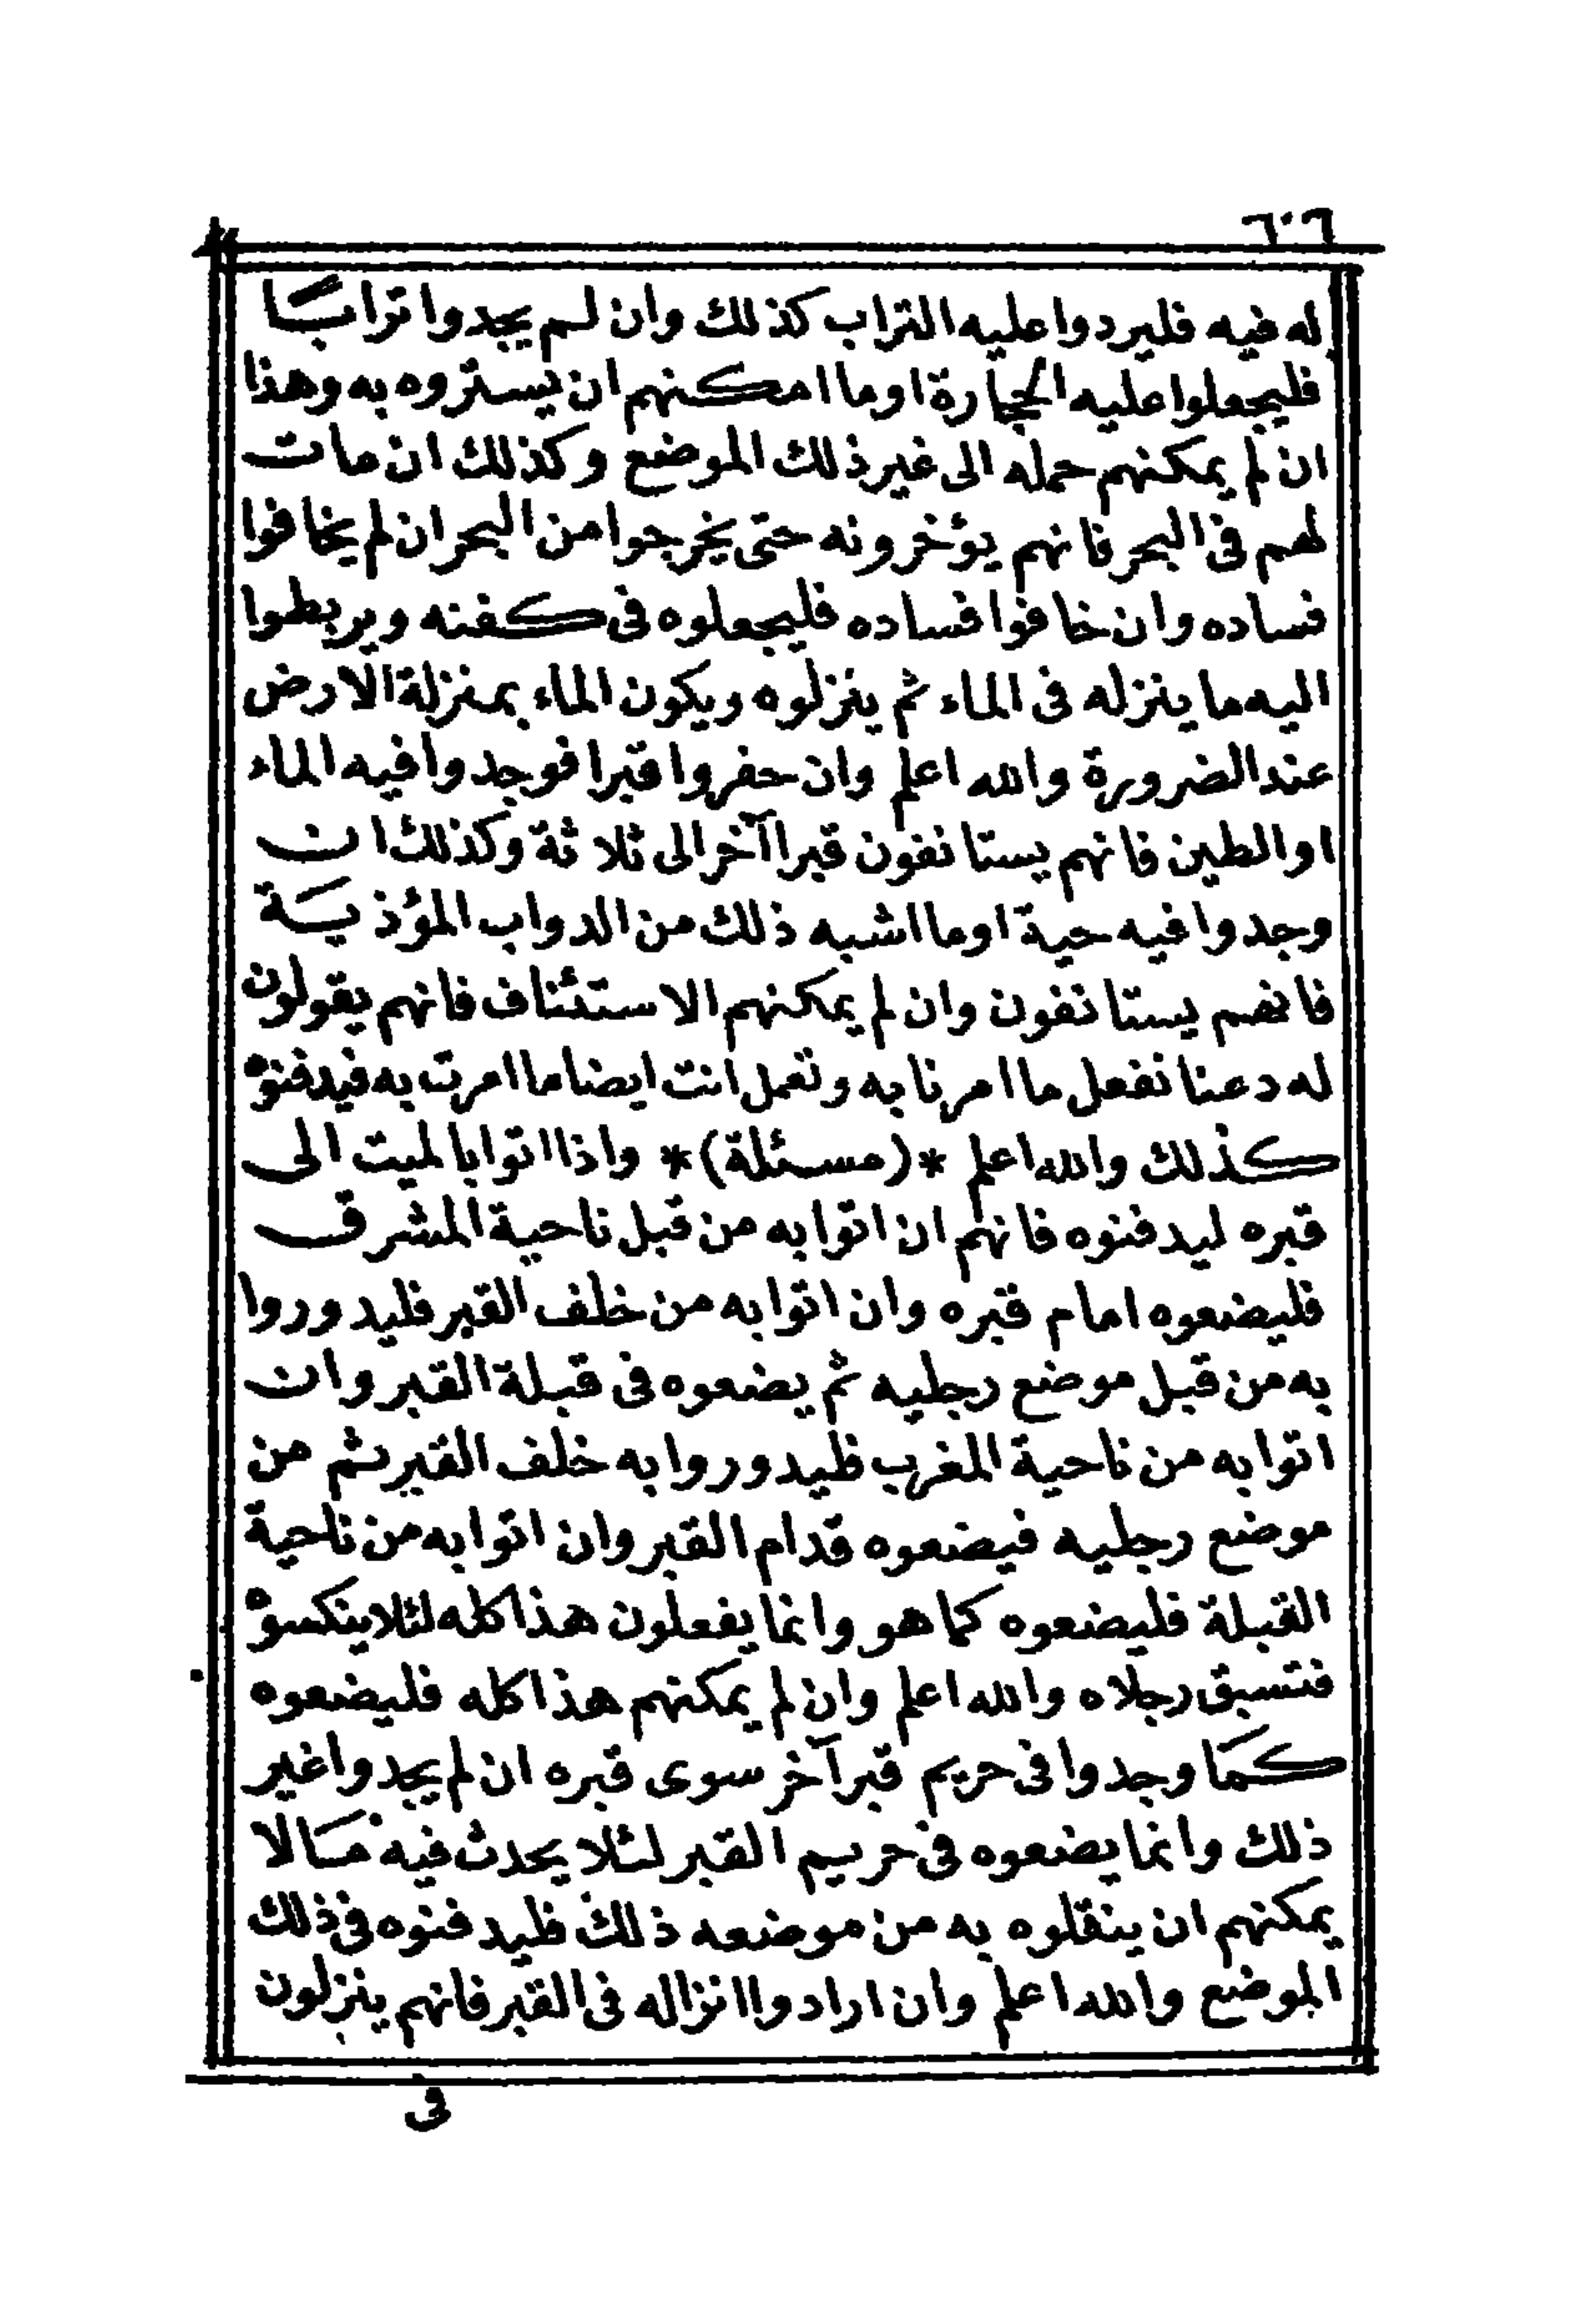 ٦٠٦
له فيه فليردوا عليه التراب كذلك وان لم يجدوا ترابا
فليجعلوا عليه الحجارة او ما امكنهم ان يستروه به وهذا
ان لم يمكنهم حمله الى غير ذلك الموضع وكذلك ان مات
لهم فى البحر فانهم يؤخرونه حتى يخرجوا من البحر ان لم يخافوا
فساده وان خافوا فساده فليجعلوه فى كفنه ويربطوا
اليه ما ينزله فى الماء ثم ينزلوه ويكون الماء بمنزلة الارض
عند الضرورة والله اعلم وان حفروا قبرا فوجدوا فيه الماء
او الطين فانهم يستانفون قبرا آخر الى ثلاثة وكذلك ان
وجدوا فيه حية او ما اشبه ذلك من الدواب المؤذية
فانهم يستانفون وان لم يمكنهم الاستئناف فانهم يقولون
له دعنا نفعل ما امرنا به وتعمل انت ايضا ما امرت به فيدفنوه
كذلك والله اعلم *(مسئلة)* واذا اتوا بالميت الى
قبره ليدفنوه فانهم ان اتوا به من قبل ناحية المشرق
فليضعوه امام قبره وان اتوا به من خلف القبر فليدوروا
به من قبل موضع رجليه ثم يضعوه فى قبلة القبر وان
اتوا به من ناحية المغرب فليدوروا به خلف القبر ثم من
موضع رجليه فيضعوه قدام القبر وان اتوا به من ناحية
القبلة فليضعوه كما هو وانما يفعلون هذا كله لئلا ينكسوه
فتسبق رجلاه والله اعلم وان لم يمكنهم هذا كله فليضعوه
كما وجدوا فى حريم قبر آخر سوى قبره ان لم يجدوا غير
ذلك وانما يضعوه فى حريم القبر لئلا يحدث فيه مالا
يمكنهم ان ينقلوه به من موضعه ذلك فليدفنوه فى ذلك
الموضع والله اعلم وان ارادوا انزاله فى القبر فانهم ينزلون
فى